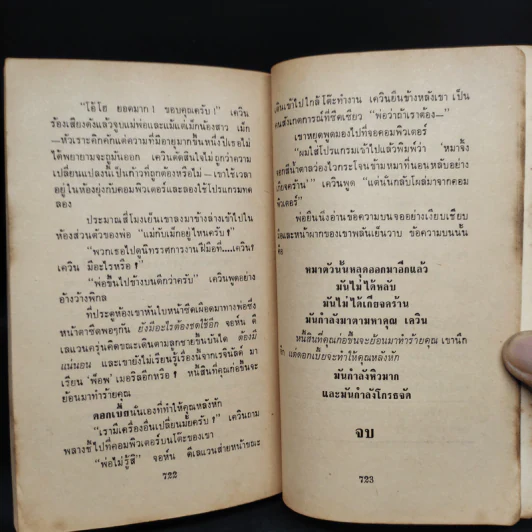 "โอ้โฮ ยอดมาก! ขอบคุณครับ!" เควิน
ร้องเสียงดังแล้วจูบแม่พ่อและแม้แต่เม็กน้องสาว เม็ก
—หัวเราะคิกคักแต่ความที่มีอายุมากขึ้นหนึ่งปีเธอไม่
ได้พยายามจะถูมันออก เควินตัดสินใจไม่ถูกว่าความ
เปลี่ยนแปลงนี้เป็นก้าวที่ถูกต้องหรือไม่—เขาใช้เวลา
อยู่ในห้องยุ่งกับคอมพิวเตอร์และลองใช้โปรแกรมทด
ลอง
ประมาณสี่โมงเย็นเขาลงมาข้างล่างเข้าไปใน
ห้องส่วนตัวของพ่อ "แม่กับเม็กอยู่ไหนครับ?"
"พวกเธอไปดูนิทรรศการงานฝีมือที่....เควิน?
เควิน มีอะไรหรือ?"
"พ่อขึ้นไปข้างบนดีกว่าครับ" เควินพูดอย่าง
อ้างว้างพิกล
ที่ประตูห้องเขาหันใบหน้าซีดเผือดมาทางพ่อซึ่ง
หน้าตาซีดพอๆกัน ยังมีอะไรต้องชดใช้อีก จอห์น ดี
เลแวนครุ่นคิดขณะเดินตามลูกชายขึ้นบันได ต้องมี
แน่นอน และเขายังไม่เรียนรู้เรื่องนี้จากเรจินัลด์ มา
เรียน 'พ็อพ' เมอริลอีกหรือ? หนี้สินที่คุณก่อขึ้นจะ
ย้อนมาทำร้ายคุณ
ดอกเบี้ยนั่นเองที่ทำให้คุณหลังหัก
"เรามีเครื่องอื่นเปลี่ยนมั้ยครับ?" เควินถาม
พลางชี้ไปที่คอมพิวเตอร์บนโต๊ะของเขา
"พ่อไม่รู้สิ" จอห์น ดีเลแวนส่ายหน้าขณะ
722
เดินเข้าไปใกล้โต๊ะทำงาน เควินยืนข้างหลังเขา เป็น
สังเกตการณ์ที่ซีดเซียว "พ่อว่าถ้าเราต้อง—"
เขาหยุดพูดมองไปที่จอคอมพิวเตอร์
"ผมใส่โปรแกรมเข้าไปแล้วพิมพ์ว่า 'หมาจิ้ง
จอกสีน้ำตาลว่องไวกระโจนข้ามหมาที่นอนหลับอย่าง
เกียจคร้าน'" เควินพูด "แต่นั่นกลับโผล่มาจากคอม
พิวเตอร์"
พ่อยืนนิ่งอ่านข้อความบนจออย่างเงียบเชียบ
และหน้าผากของเขาพลันเย็นวาบ ข้อความบนนั้น
คือ
หมาตัวนั้นหลุดออกมาอีกแล้ว
มันไม่ได้หลับ
มันไม่ได้เกียจคร้าน
มันกำลังมาตามหาคุณ เควิน
หนี้สินที่คุณก่อขึ้นจะย้อนมาทำร้ายคุณ เขานึก
แต่ดอกเบี้ยจะทำให้คุณหลังหัก
มันกำลังหิวมาก
และมันกำลังโกรธจัด
จบ
723